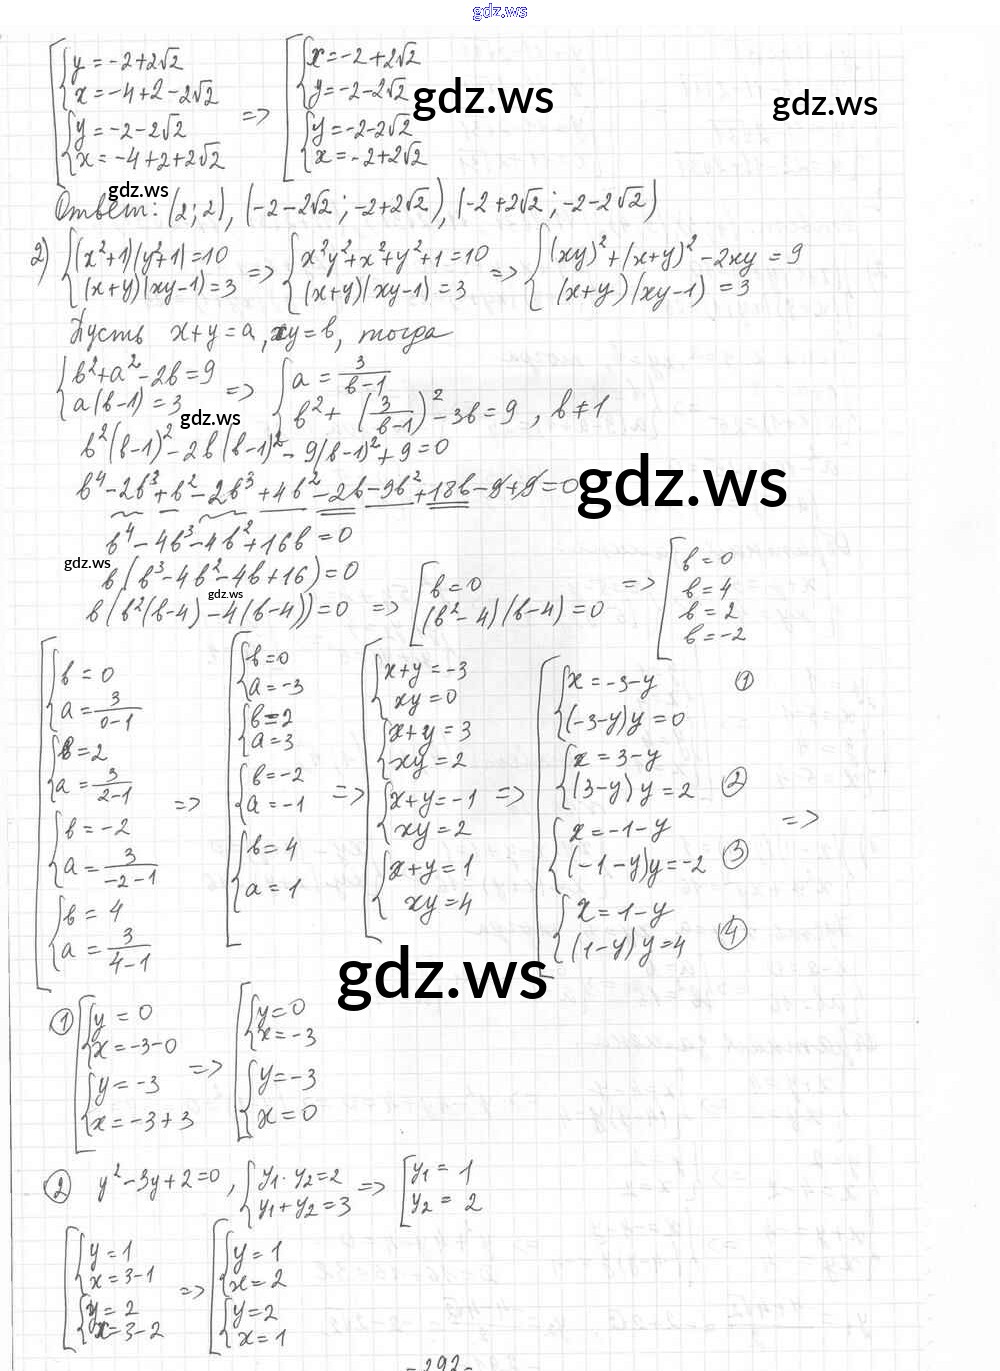 gdz.ws
y = -2+2√2
x = -4+2-2√2
y = -2-2√2
x = -4+2+2√2
=>
x = -2+2√2
y = -2-2√2
y = -2-2√2
x = -2+2√2
gdz.ws
gdz.ws
gdz.ws
Ответ: (2; 2), (-2-2√2; -2+2√2), (-2+2√2; -2-2√2)
2) { (x²+1)(y²+1)=10 => { x²y²+x²+y²+1=10 => { (xy)²+(x+y)²-2xy=9
(x+y)(xy-1)=3 (x+y)(xy-1)=3 (x+y)(xy-1)=3
Пусть x+y=a, xy=b, тогда
{ b²+a²-2b=9 => { a = 3/(b-1)
a(b-1)=3 b²+(3/(b-1))²-3b=9, b≠1
gdz.ws
b²(b-1)²-2b(b-1)²-9(b-1)²+9=0
b⁴-2b³+b²-2b³+4b²-2b-9b²+18b-9+9=0
gdz.ws
b⁴-4b³-4b²+16b=0
gdz.ws
b(b³-4b²-4b+16)=0
gdz.ws
b(b²(b-4)-4(b-4))=0 => [ b=0
(b²-4)(b-4)=0
=> [ b=0
b=4
b=2
b=-2
b=0
a=3/(0-1)
b=2
a=3/(2-1)
b=-2
a=3/(-2-1)
b=4
a=3/(4-1)
=>
b=0
a=-3
b=2
a=3
b=-2
a=-1
b=4
a=1
=>
x+y=-3
xy=0
x+y=3
xy=2
x+y=-1
xy=2
x+y=1
xy=4
=>
x=-3-y ①
(-3-y)y=0
x=3-y
(3-y)y=2 ②
x=-1-y
(-1-y)y=-2 ③
x=1-y
(1-y)y=4 ④
=>
gdz.ws
① y=0
x=-3-0
y=-3
x=-3+3
=>
y=0
x=-3
y=-3
x=0
② y²-3y+2=0, { y₁·y₂=2 => [ y₁=1
y₁+y₂=3 y₂=2
y=1
x=3-1
y=2
x=3-2
=>
y=1
x=2
y=2
x=1
-292-